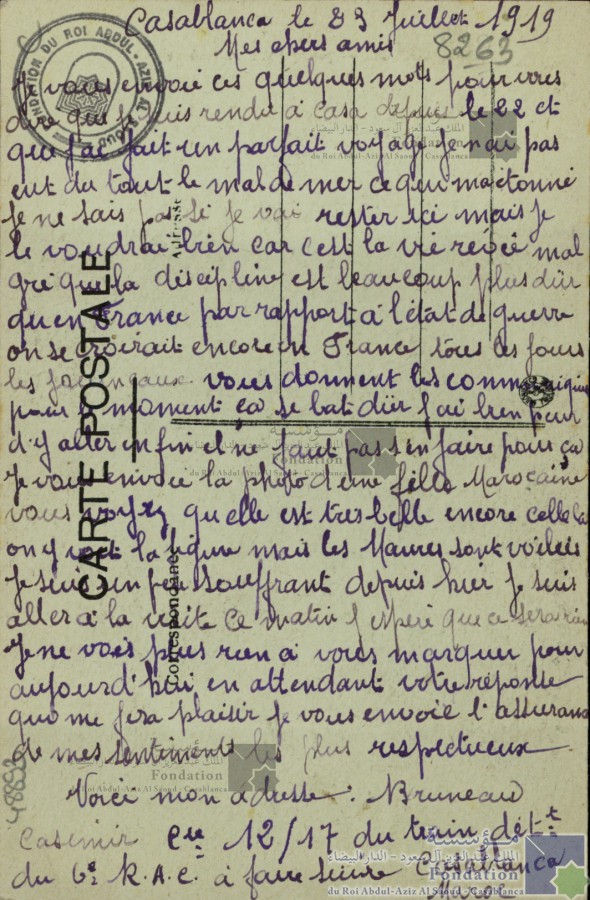 Casablanca le 23 Juillet 1919
Mes chers amis
8263
Je vous envoie ces quelques mots pour vous
dire que je suis rendu a casa depuis le 22 et
que j'ai fait un parfait voyage je n'ai pas
eut du tout le mal de mer ce qui ma étonné
Je ne sais pas si je vais rester ici mais je
le voudrai bien car c'est la vie rêvée mal
gré que la discipline est beaucoup plus dur
qu'en France par rapport a l'état de guerre
on se croirait encore en France tous les jours
les journeaux vous donnent les communiqués
pour le moment ça se bat dur j'ai bien peur
d'y aller enfin il ne faut pas s'en faire pour ça
Je vous envoie la photo d'une fille Marocaine
vous voyez qu'elle est tres belle encore celle la
on y voit la figure mais les Maures sont voilées
Je suis un peu souffrant depuis hier je suis
aller à la visite ce matin j'espere que ce sera rien
Je ne vois plus rien a vous marquer pour
aujourd'hui en attendant votre réponse
qui me fera plaisir je vous envoie l'assurance
de mes sentiments les plus respectueux
Voici mon adresse : Bruneau
Casimir 12/17 du train dét
du 6e R.A.C. à faire suivre Casablanca
Maroc
CARTE POSTALE
Correspondance
Adresse
FONDATION DU ROI ABDUL-AZIZ AL SAOUD
مؤسسة
الملك عبد العزيز آل سعود - الدار البيضاء
Fondation
du Roi Abdul-Aziz Al Saoud - Casablanca